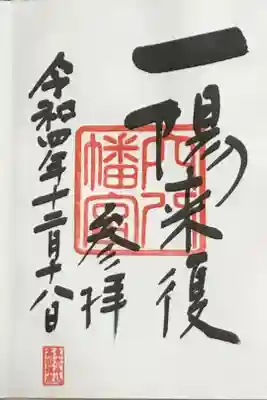 一陽来復
参拝
令和四年十二月十八日
穴八
幡宮